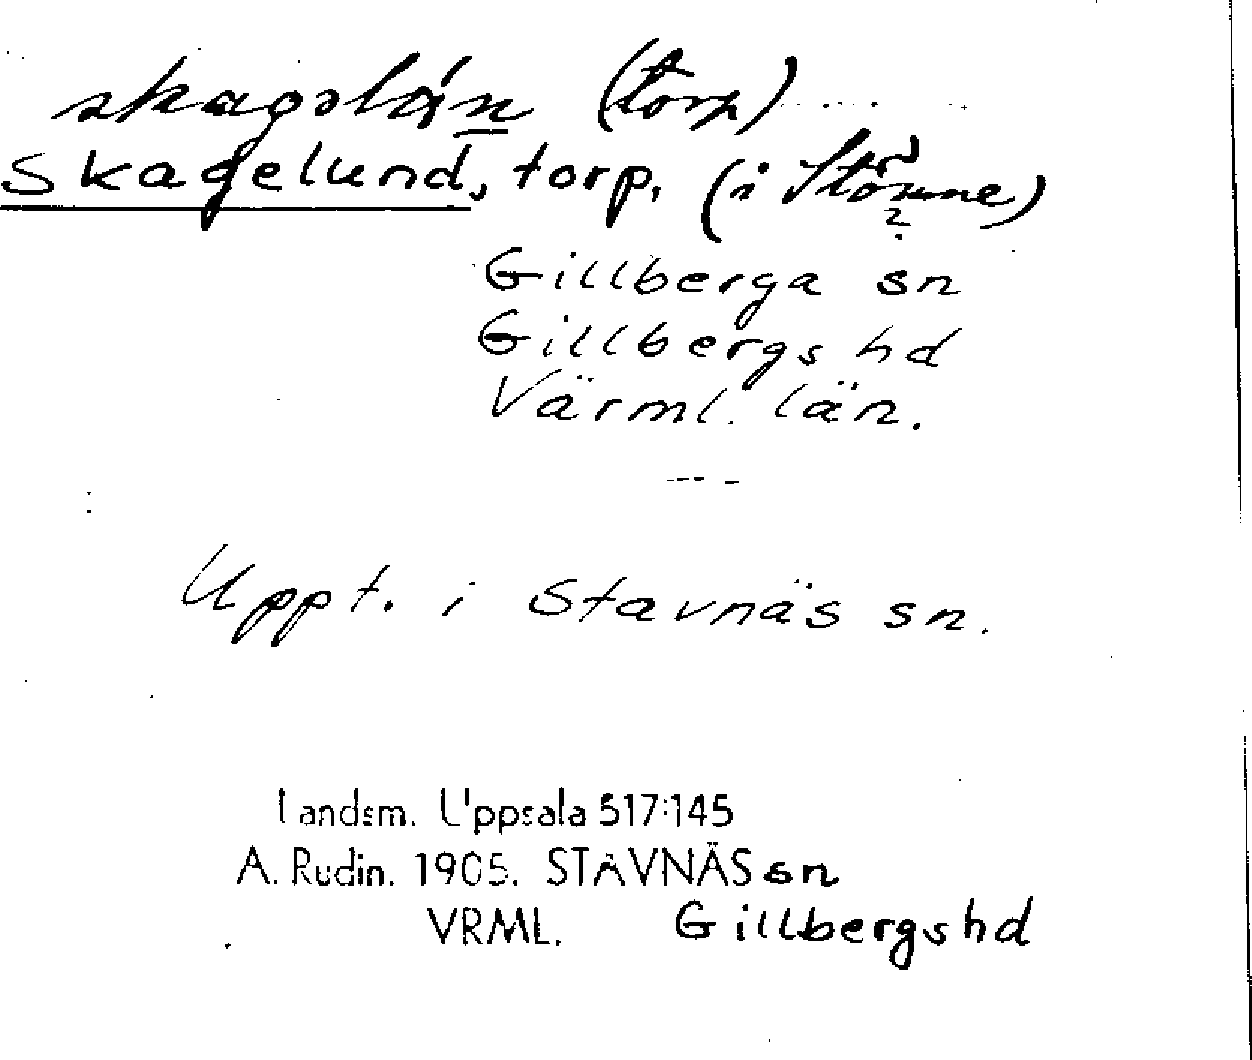 (torp)
Skagelund, torp. (i
Gillberga sn
Gillbergs hd
Värml. län.
Uppt. i Stavnäs sn.
Landsm. Uppsala 517:145
A. Rudin. 1905. STAVNÄS sn
VRML. Gillbergs hd